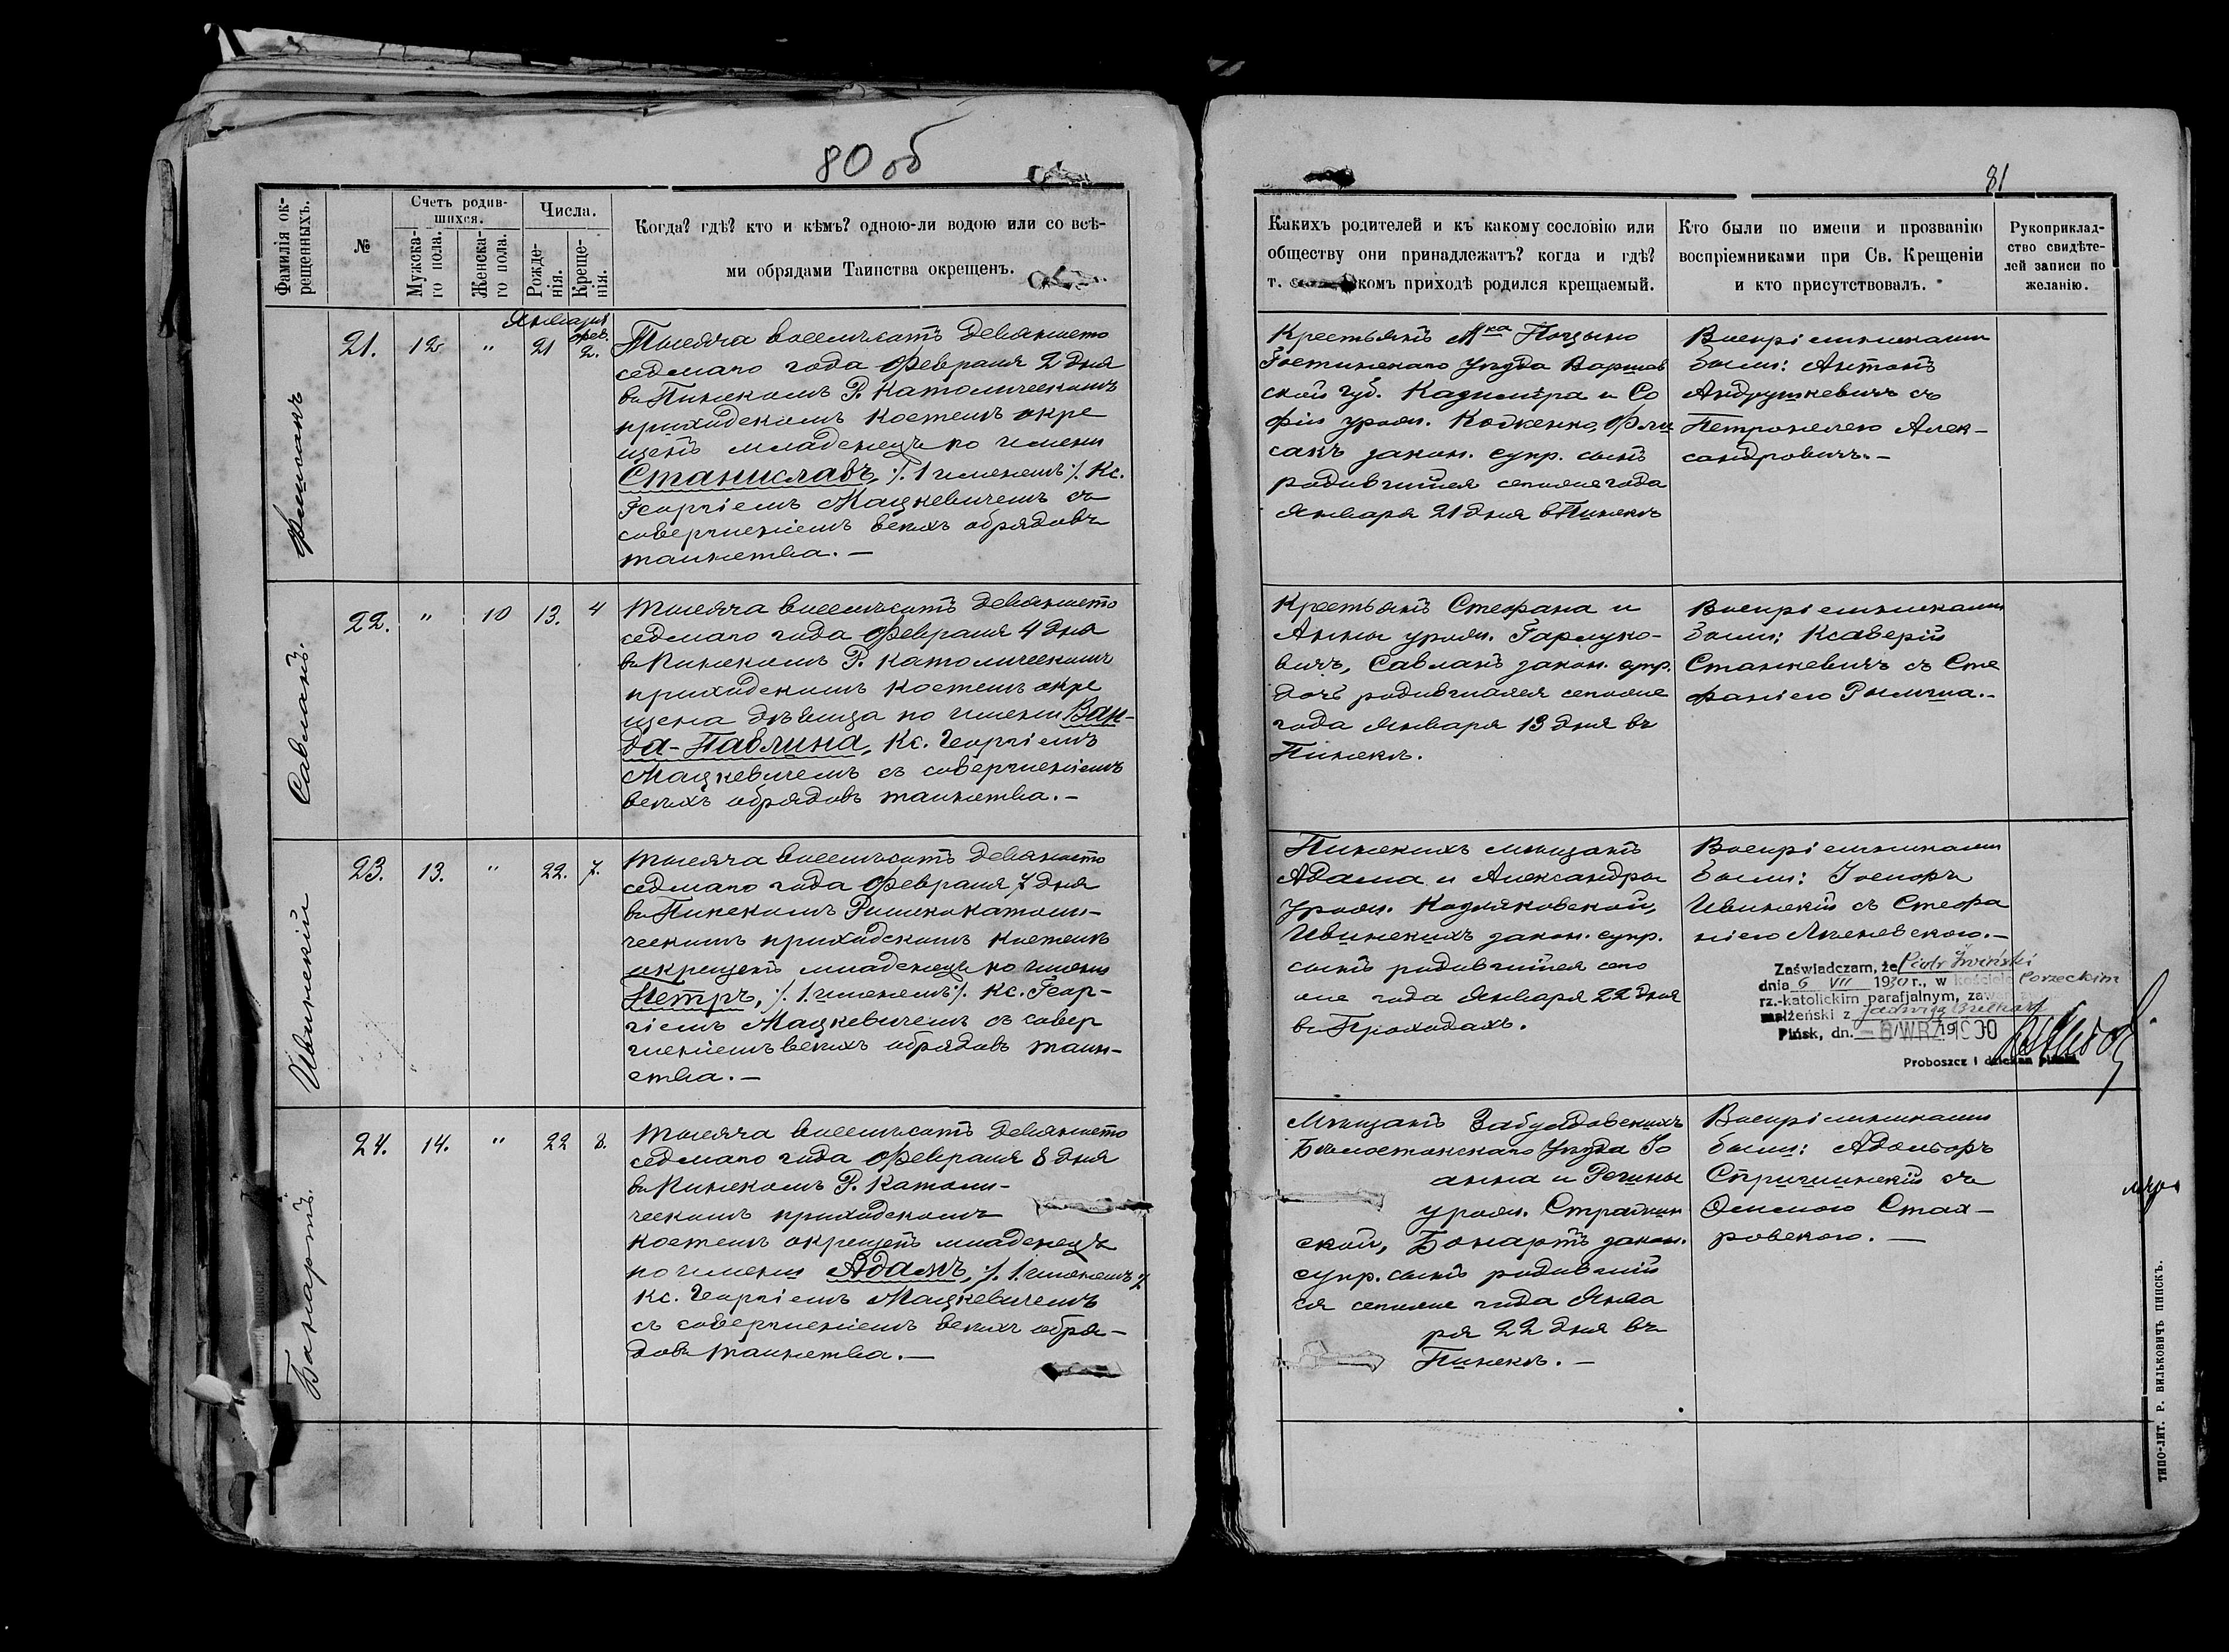 80 об
Фамилія ок-
рещенныхъ.
№
Счетъ родив-
шихся.
Мужска-
го пола.
Женска-
го пола.
Числа.
Рожде-
нія.
Креще-
нія.
Когда? гдѣ? кто и кѣмъ? одною-ли водою или со всѣ-
ми обрядами Таинства окрещенъ.
21.
12
"
Января
21
Фев.
2.
Тысяча восемьсотъ девяносто
седмаго года Февраля 2 дня
въ Пинскомъ Р. Католическомъ
приходскомъ костелѣ окре
щенъ младенецъ по имени
Станиславъ, ./. 1 именемъ ./. Кс.
Георгіемъ Мацкевичемъ съ
совершеніемъ всѣхъ обрядовъ
таинства. —
Савланъ.
22.
"
10
13.
4
Тысяча восемьсотъ девяносто
седмаго года Февраля 4 дня
въ Пинскомъ Р. Католическомъ
приходскомъ костелѣ окре
щена дѣвица по имени Ван-
да-Павлина, Кс. Георгіемъ
Мацкевичемъ съ совершеніемъ
всѣхъ обрядовъ таинства. —
Ивинскій
23.
13.
"
22.
7.
Тысяча восемьсотъ девяносто
седмаго года Февраля 7 дня
въ Пинскомъ Римскокатоли-
ческомъ приходскомъ костелѣ
окрещенъ младенецъ по имени
Петръ, ./. 1 именемъ ./. Кс. Геор-
гіемъ Мацкевичемъ съ совер
шеніемъ всѣхъ обрядовъ таин-
ства. —
Бонартъ.
24.
14.
"
22
8.
Тысяча восемьсотъ девяносто
седмаго года Февраля 8 дня
въ Пинскомъ Р. Католи-
ческомъ приходскомъ
костелѣ окрещенъ младенецъ
по имени Адамъ, ./. 1. именемъ ./.
Кс. Георгіемъ Мацкевичемъ
съ совершеніемъ всѣхъ обря-
довъ таинства. —
81
Какихъ родителей и къ какому сословію или
обществу они принадлежатъ? когда и гдѣ?
т. комъ приходѣ родился крещаемый.
Кто были по имени и прозванію
воспріемниками при Св. Крещеніи
и кто присутствовалъ.
Рукоприклад-
ство свидѣте-
лей записи по
желанію.
Крестьянъ
Гостинскаго Уѣзда Варшав
ской губ. Казимѣра и Со
фіи урожд.
сакъ закон. супр. сынъ
родившійся сегоже года
Января 21 дня въ Пинскѣ
Воспріемниками
были: Антонъ
Андрушкевичъ съ
Петронелею Алек-
сандровичъ. —
Крестьянъ Стефана и
Анны урожд. Гарлуко-
вичъ, Савланъ закон. супр.
дочь родившаяся сегоже
года Января 13 дня въ
Пинскѣ.
Воспріемниками
были: Ксаверій
Станкевичъ съ Сте
фаніею
Пинскихъ мѣщанъ
Адама и Александры
Урожд. Козляковской,
Ивинскихъ закон. супр.
сынъ родившійся сего
же года Января 22 дня
въ Проходахъ.
Воспріемниками
были: Іосифъ
Ивинскій съ Стефа
ніею
Zaświadczam, że Piotr Iwiński
dnia 6 VII 1930 r., w kościele Porzeckim
rz.-katolickim parafjalnym, zawarł zw.
małżeński z Jadwigą
Pińsk, dn. — 6/WRZ. 1930
Proboszcz i dziekan piński
Мѣщанъ Забудовскихъ
Бѣлостокскаго Уѣзда Іо
анна и Регины
урожд.
ской, Бонартъ закон.
супр. сынъ родившій
ся сегоже года Янва
ря 22 дня въ
Пинскѣ. —
Воспріемниками
были: Адольфъ
съ
Стах-
ровскою. —
ТИПО-ЛИТ. Р. ВИЛЬКОВИЧЪ ПИНСКЪ.